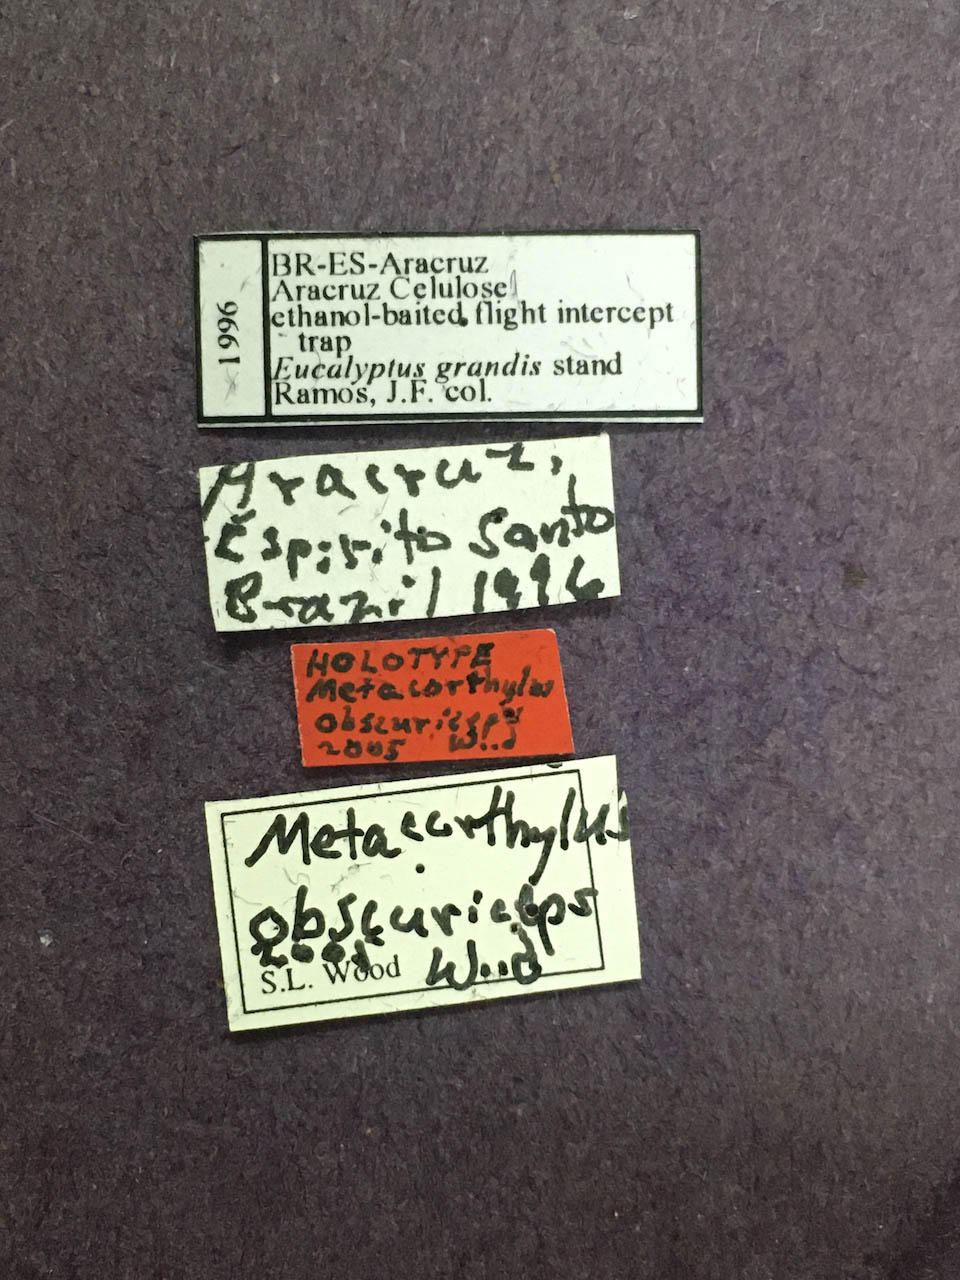 1996
BR-ES-Aracruz
Aracruz Celulose
ethanol-baited flight intercept
trap
Eucalyptus grandis stand
Ramos, J.F. col.
Aracruz,
Espirito Santo
Brazil 1996
HOLOTYPE
Metacorthylus
obscuriceps
2005 Wood
Metacorthylus
obscuriceps
2005 Wood
S.L. Wood